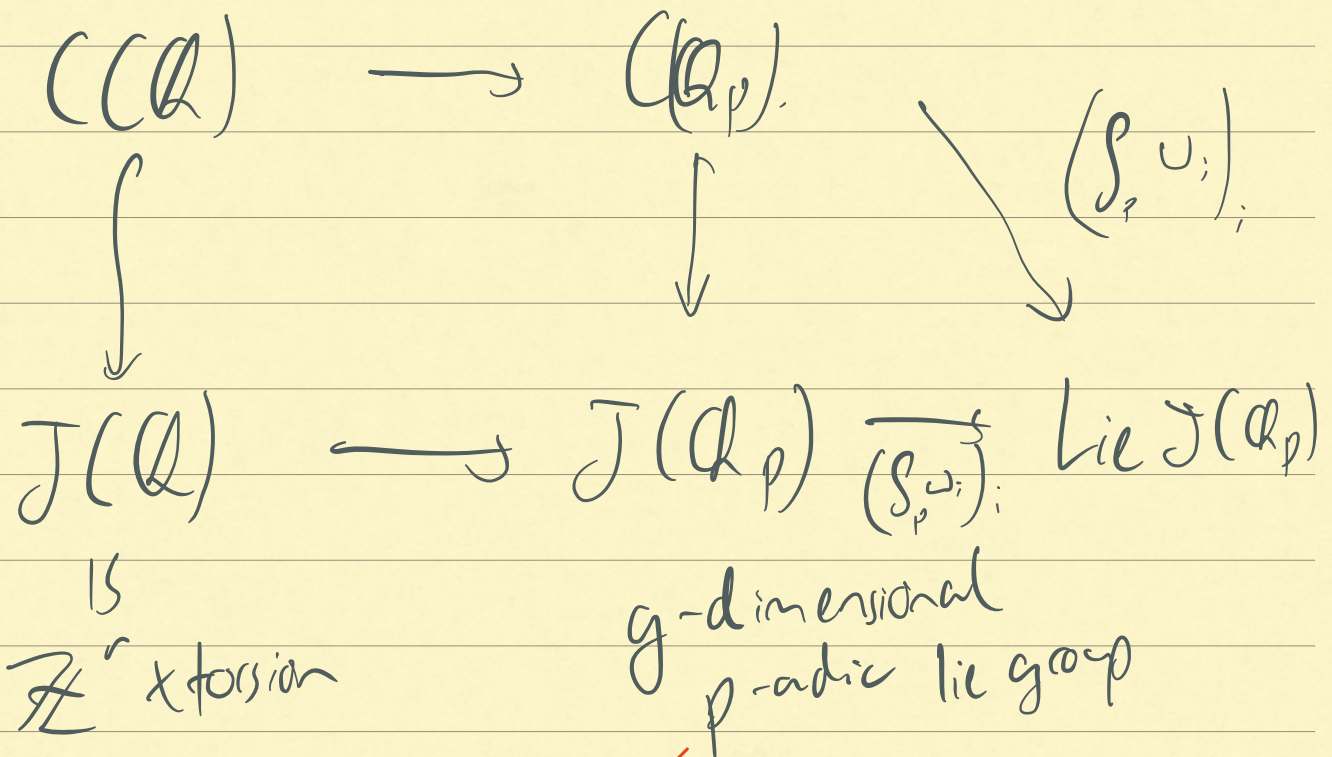 C(Q) → C(Q_p). (∫_p ω_i)_i
J(Q) → J(Q_p) → Lie J(Q_p)
(∫_p ω_i)_i
IS
Z^r x torsion
g-dimensional
p-adic lie group